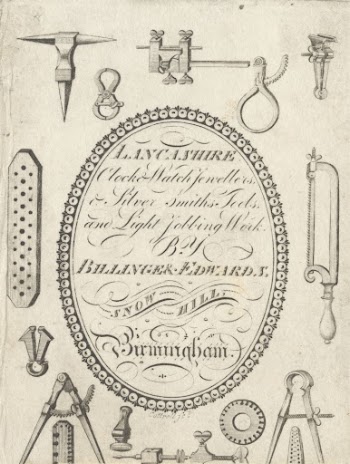 LANCASHIRE
Clock & Watch Jewellers,
& Silver Smiths Tools.
and Light Jobbing Work.
BY
BILLINGE & EDWARDS.
SNOW HILL,
Birmingham.